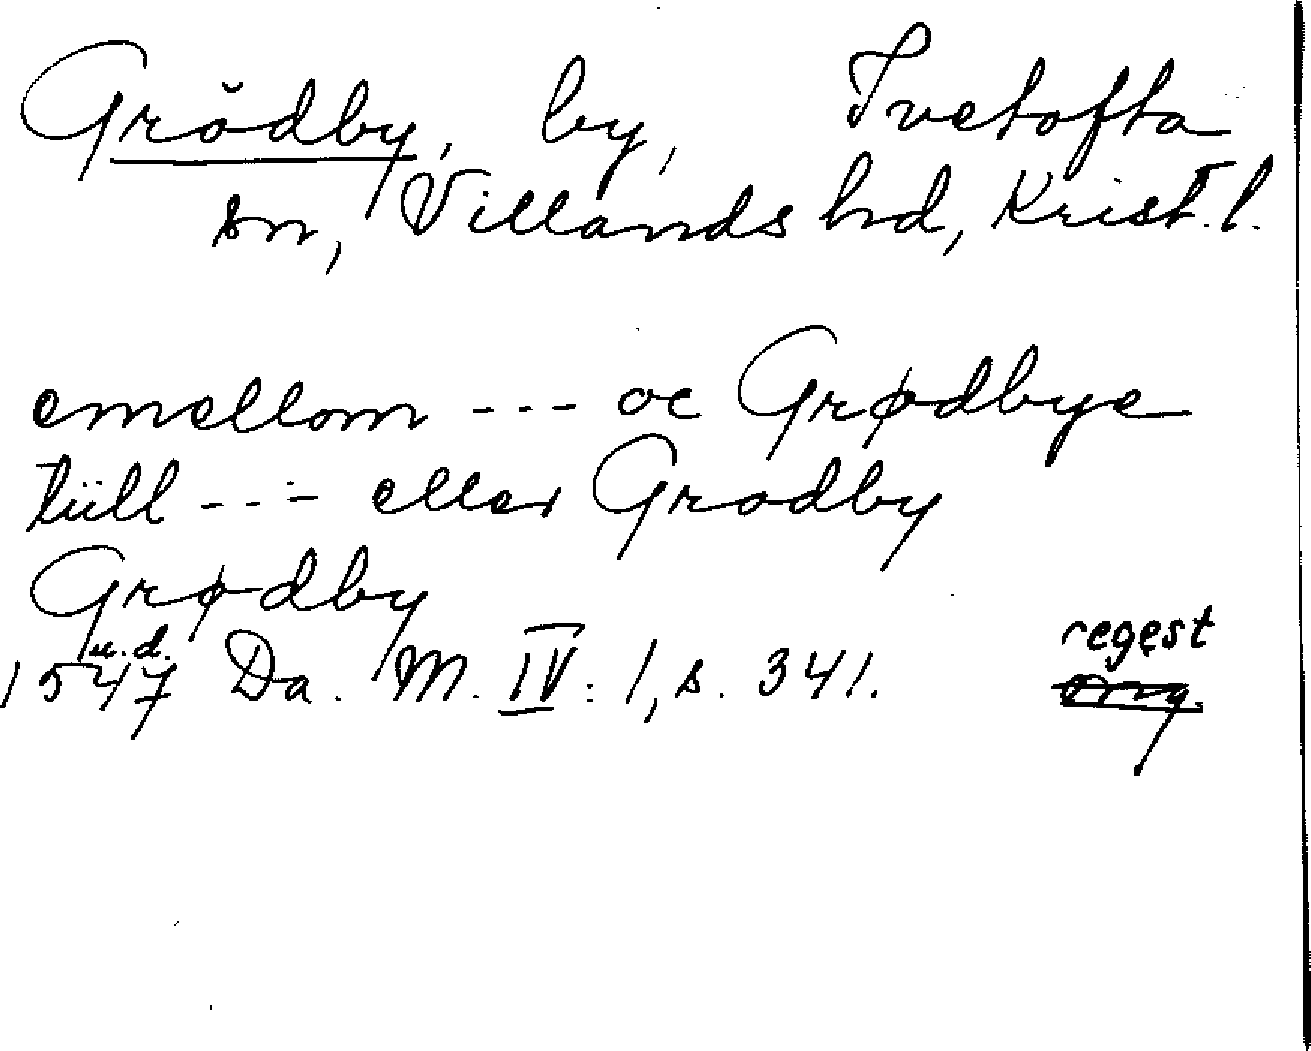 Grödby, by, Ivetofta
sn, Villands hd, Krist. l.
emellom --- oc Grødbye
tüll --- eller Grodby
Grødby
1547 u.d. Da. M. IV: 1, s. 341. regest